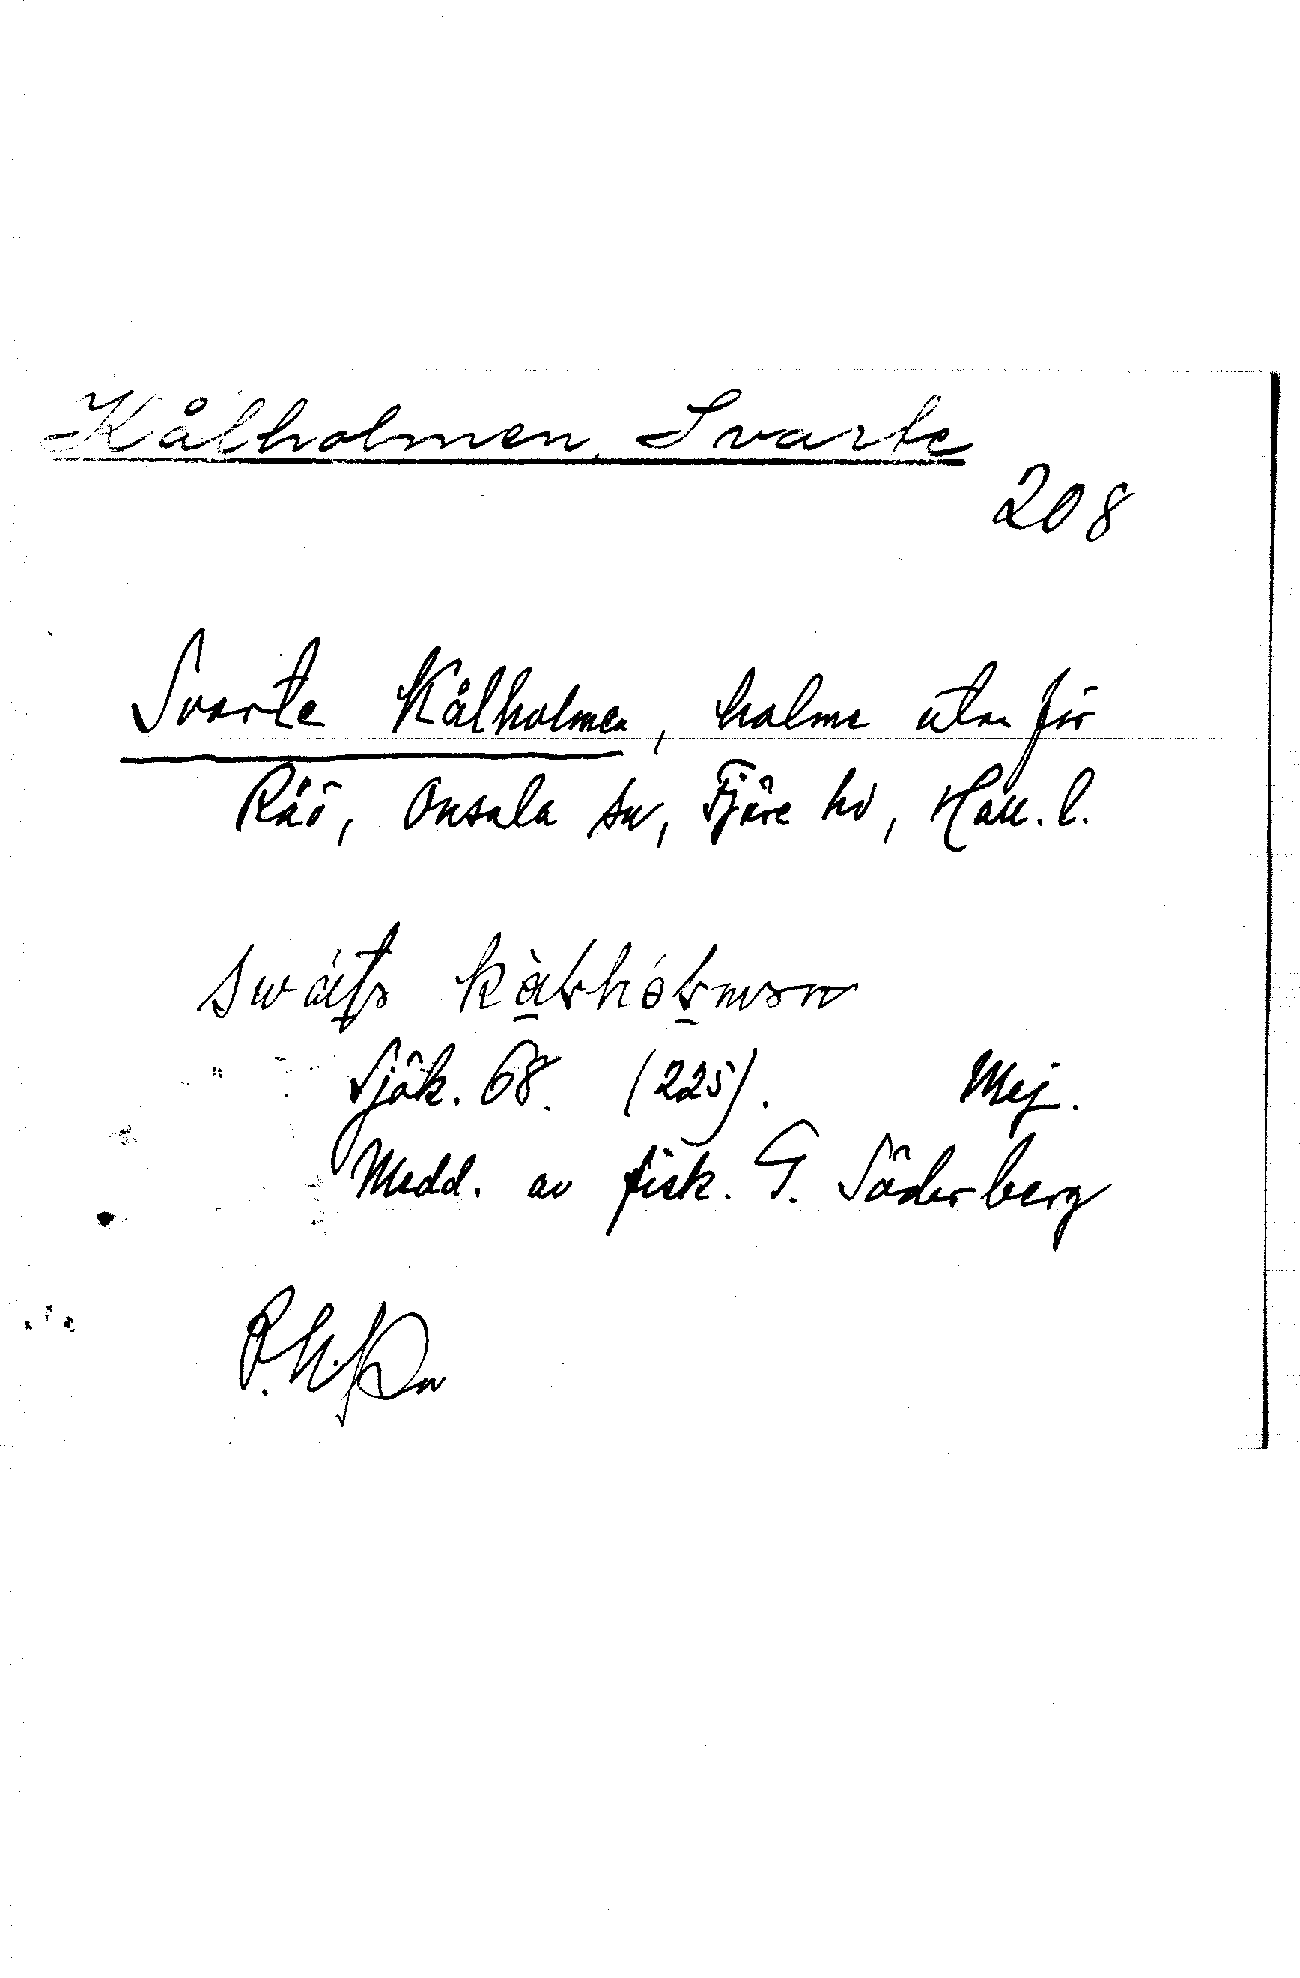 Kålholmen, Svarte
208
Svarte Kålholmen, holme utanför
Råö, Onsala sn, Fjäre hd, Hall. l.
Sjök. 68. (225). Mej.
Medd. av fisk. G. Söderberg